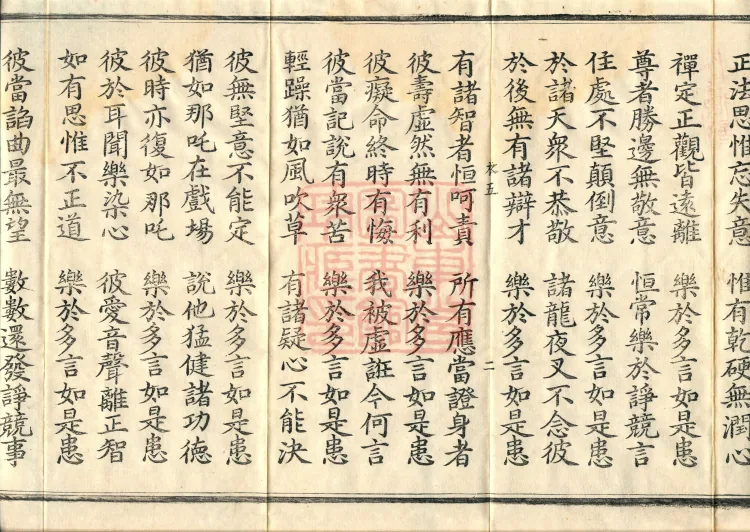 正法思惟忘失意　惟有乾硬無潤心
禪定正觀皆遠離　樂於多言如是患
尊者勝邊無敬意　恒常樂於諍競言
住處不堅顛倒意　樂於多言如是患
於諸天衆不恭敬　諸龍夜叉不念彼
於後無有諸辯才　樂於多言如是患
衣五　二
有諸智者恒呵責　所有應當證身者
彼壽虛然無有利　樂於多言如是患
彼癡命終時有悔　我被虛誑今何言
彼當記說有衆苦　樂於多言如是患
輕躁猶如風吹草　有諸疑心不能決
彼無堅意不能定　樂於多言如是患
猶如那吒在戲場　說他猛健諸功德
彼時亦復如那吒　樂於多言如是患
彼於耳聞樂染心　彼愛音聲離正智
如有思惟不正道　樂於多言如是患
彼當諂曲最無望　數數還發諍競事